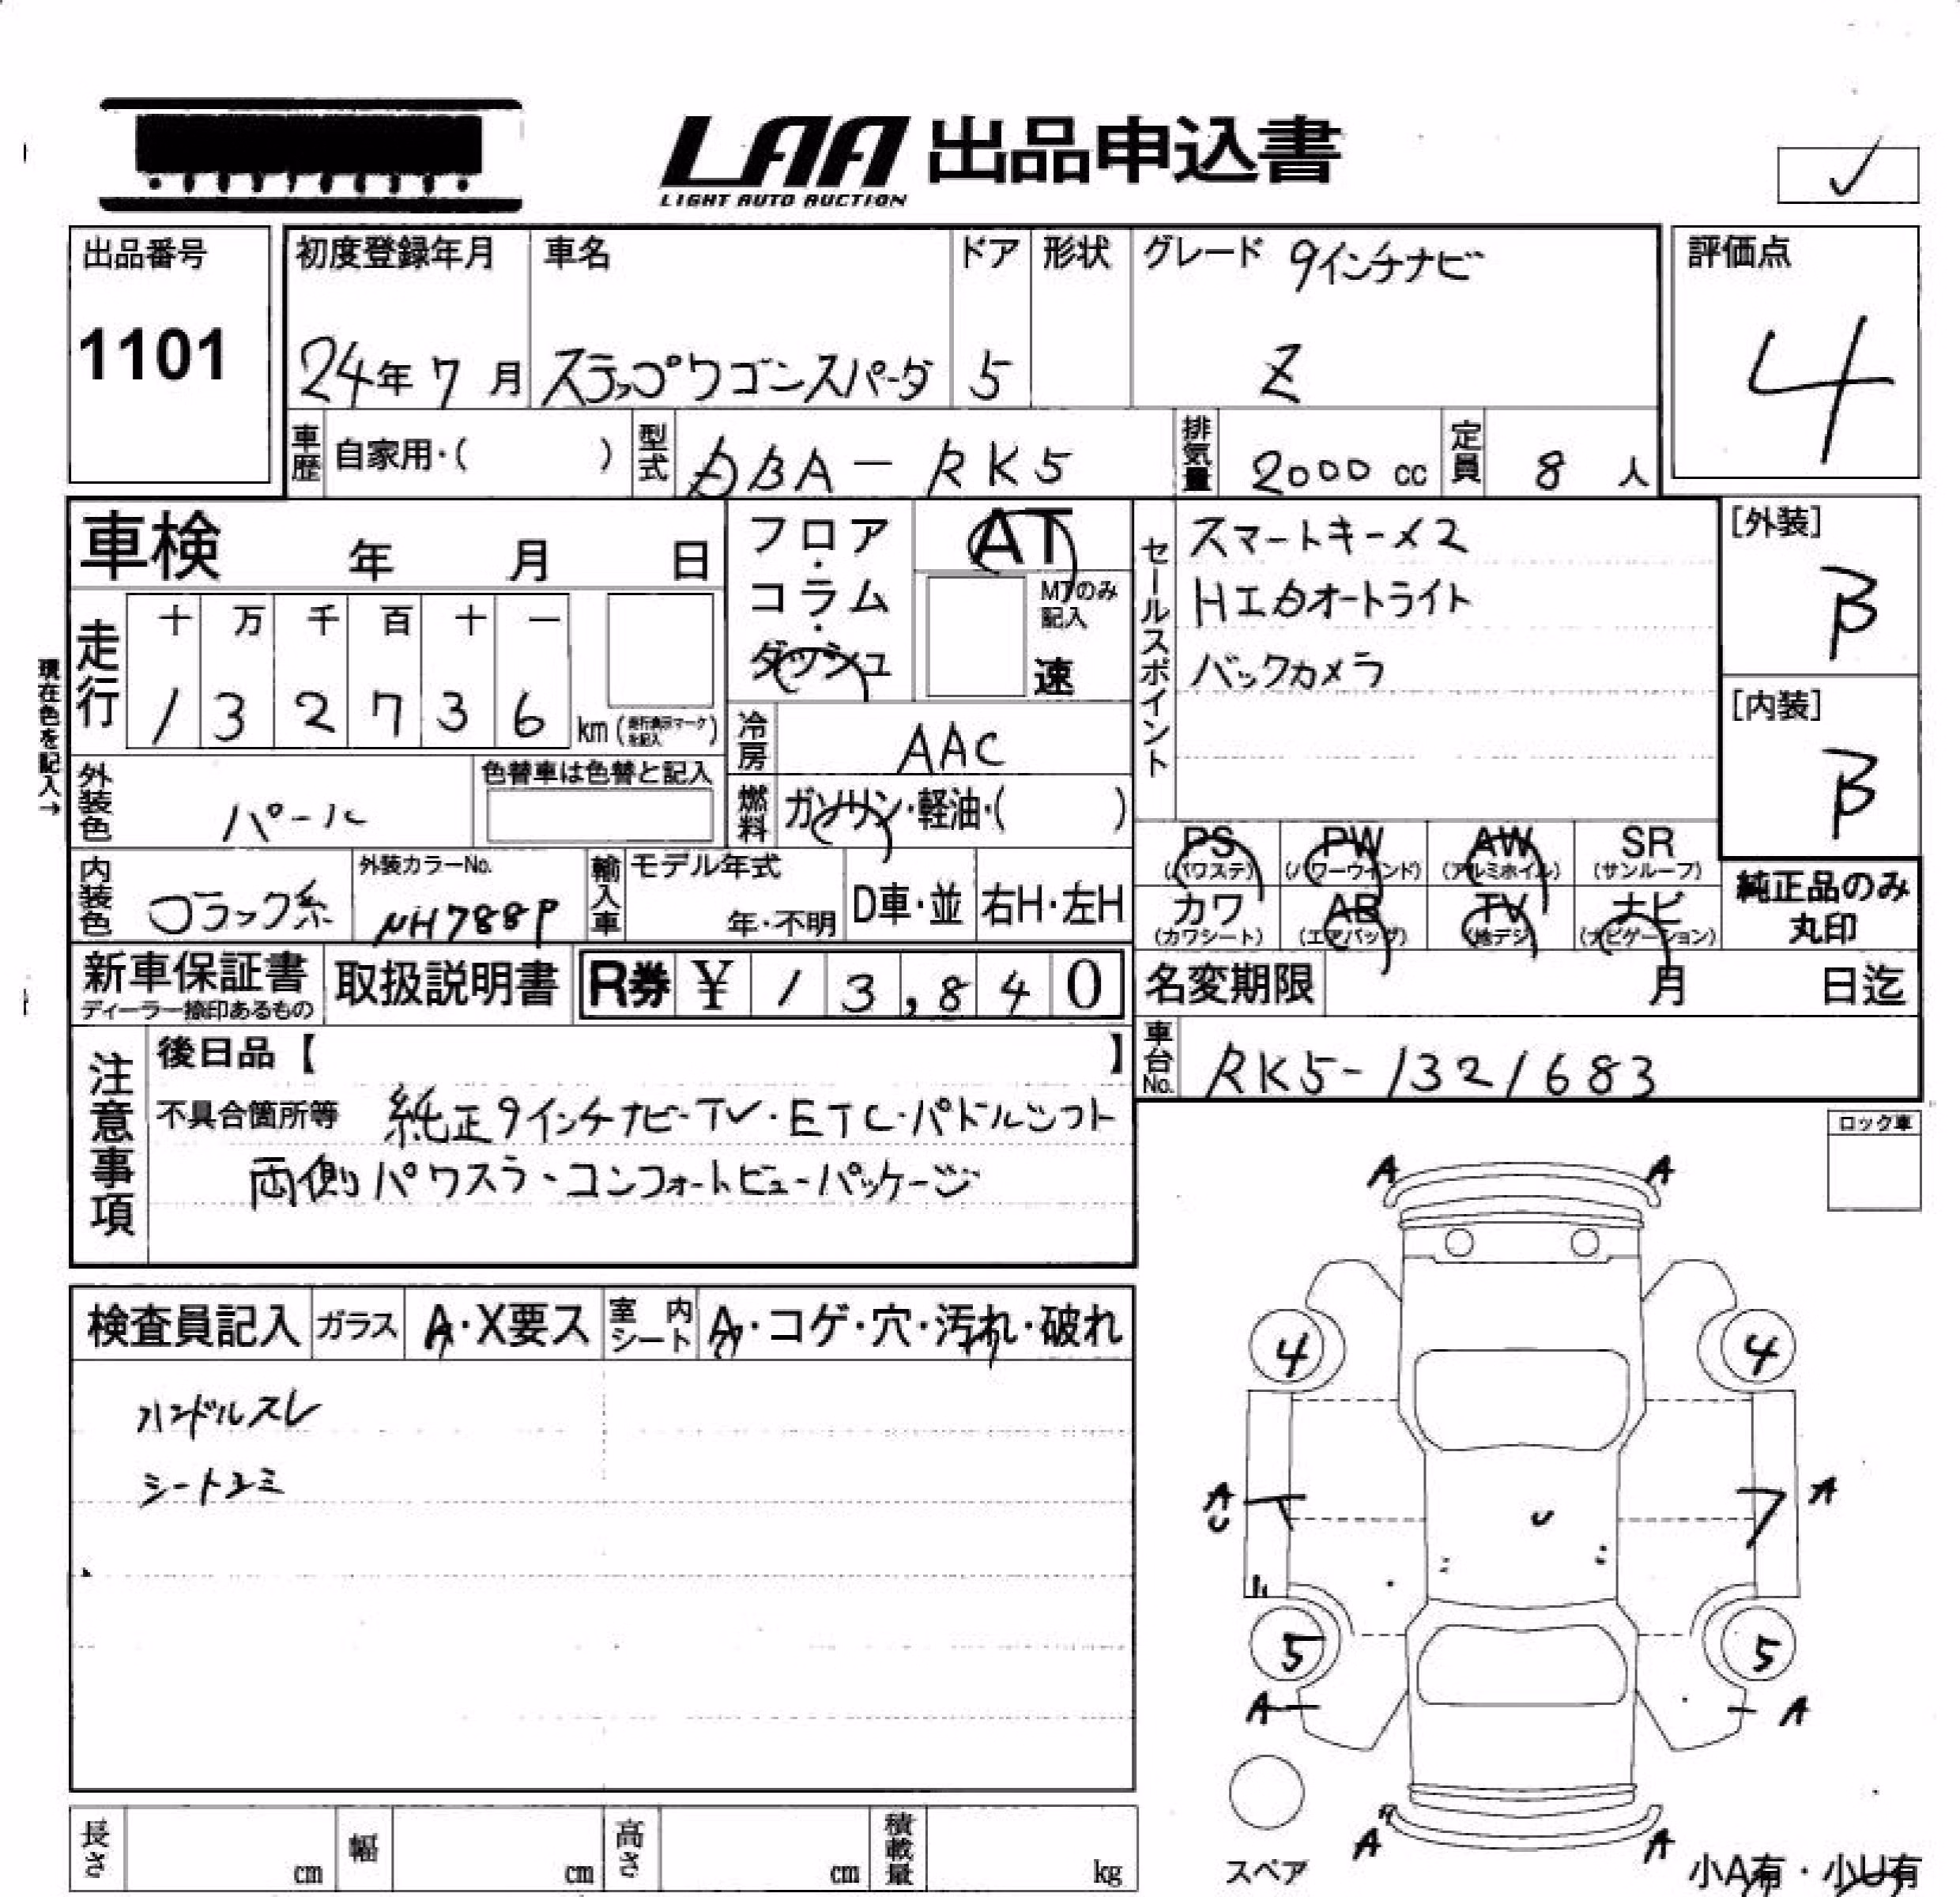 LAA 出品申込書
LIGHT AUTO AUCTION
✓
出品番号
1101
初度登録年月
24年 7月
車名
ステップワゴンスパーダ
ドア
5
形状
グレード 9インチナビ
Z
評価点
4
車歴 自家用・( )
型式 DBA-RK5
排気量 2000 cc
定員 8 人
車検 年 月 日
フロア・コラム・ダッシュ
AT
MTのみ記入
速
セールスポイント
スマートキーメ2
HIDオートライト
バックカメラ
[外装]
B
[内装]
B
現在色を記入→
走行
十 万 千 百 十 一
1 3 2 7 3 6 km (走行表示マークを記入)
冷房 AAC
外装色 パール
色替車は色替と記入
燃料 ガソリン・軽油・( )
PS (パワステ)
PW (パワーウインド)
AW (アルミホイル)
SR (サンルーフ)
カワ (カワシート)
AB (エアバッグ)
TV (地デジ)
ナビ (ナビゲーション)
純正品のみ
丸印
内装色 ブラック系
外装カラーNo.
NH788P
輸入車
モデル年式
年・不明
D車・並
右H・左H
新車保証書
ディーラー捺印あるもの
取扱説明書
R券 ¥ 13,840
名変期限 月 日迄
車台No. RK5-1321683
注意事項
後日品【 】
不具合箇所等 純正9インチナビ-TV・ETC・パドルシフト
両側パワスラ・コンフォートビューパッケージ
ロック車
検査員記入
ガラス A・X要ス
室内シート A・コゲ・穴・汚れ・破れ
ハンドルスレ
シートユミ
A A
4 4
A
U
U
A
5 5
A A
A A
スペア
小A有・小U有
長さ cm
幅 cm
高さ cm
積載量 kg